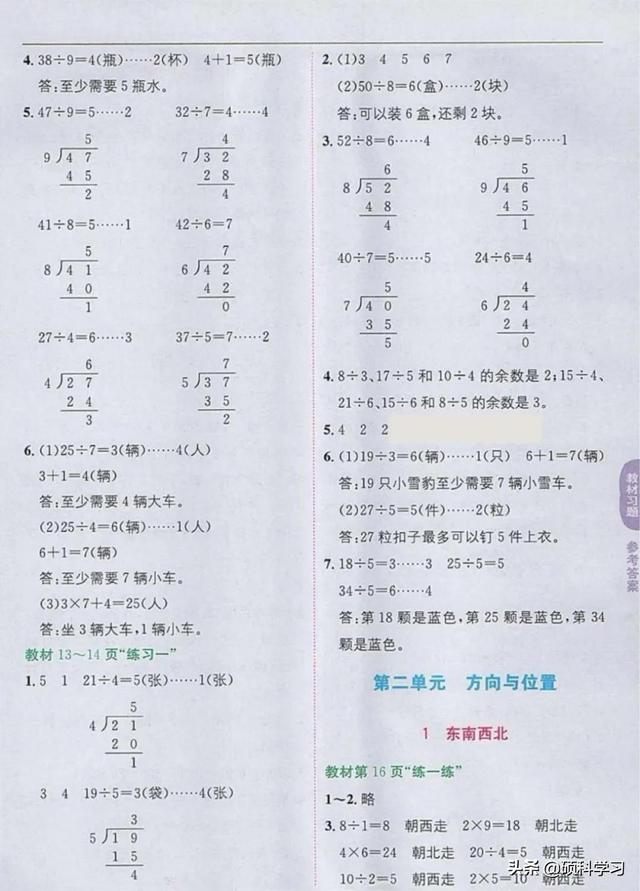 4. 38÷9=4(瓶)……2(杯)　4+1=5(瓶)
答:至少需要 5 瓶水。
5. 47÷9=5……2　32÷7=4……4
5　4
9 4 7　7 3 2
4 5　2 8
2　4
41÷8=5……1　42÷6=7
5　7
8 4 1　6 4 2
4 0　4 2
1　0
27÷4=6……3　37÷5=7……2
6　7
4 2 7　5 3 7
2 4　3 5
3　2
6. (1)25÷7=3(辆)……4(人)
3+1=4(辆)
答:至少需要 4 辆大车。
(2)25÷4=6(辆)……1(人)
6+1=7(辆)
答:至少需要 7 辆小车。
(3)3×7+4=25(人)
答:坐 3 辆大车,1 辆小车。
教材 13～14 页“练习一”
1. 5　1　21÷4=5(张)……1(张)
5
4 2 1
2 0
1
3　4　19÷5=3(袋)……4(张)
3
5 1 9
1 5
4
2. (1)3　4　5　6　7
(2)50÷8=6(盒)……2(块)
答:可以装 6 盒,还剩 2 块。
3. 52÷8=6……4　46÷9=5……1
6　5
8 5 2　9 4 6
4 8　4 5
4　1
40÷7=5……5　24÷6=4
5　4
7 4 0　6 2 4
3 5　2 4
5　0
4. 8÷3、17÷5 和 10÷4 的余数是 2;15÷4、
21÷6、15÷6 和 8÷5 的余数是 3。
5. 4　2　2
6. (1)19÷3=6(辆)……1(只)　6+1=7(辆)
答:19 只小雪豹至少需要 7 辆小雪车。
(2)27÷5=5(件)……2(粒)
答:27 粒扣子最多可以钉 5 件上衣。
7. 18÷5=3……3　25÷5=5
34÷5=6……4
答:第 18 颗是蓝色,第 25 颗是蓝色,第 34
颗是蓝色。
第二单元　方向与位置
1　东南西北
教材第 16 页“练一练”
1～2. 略
3. 8÷1=8　朝西走　2×9=18　朝北走
4×6=24　朝北走　20÷4=5　朝西走
10÷2=5　朝西走　2×5=10
教材习题
参考答案
头条 @硕科学习